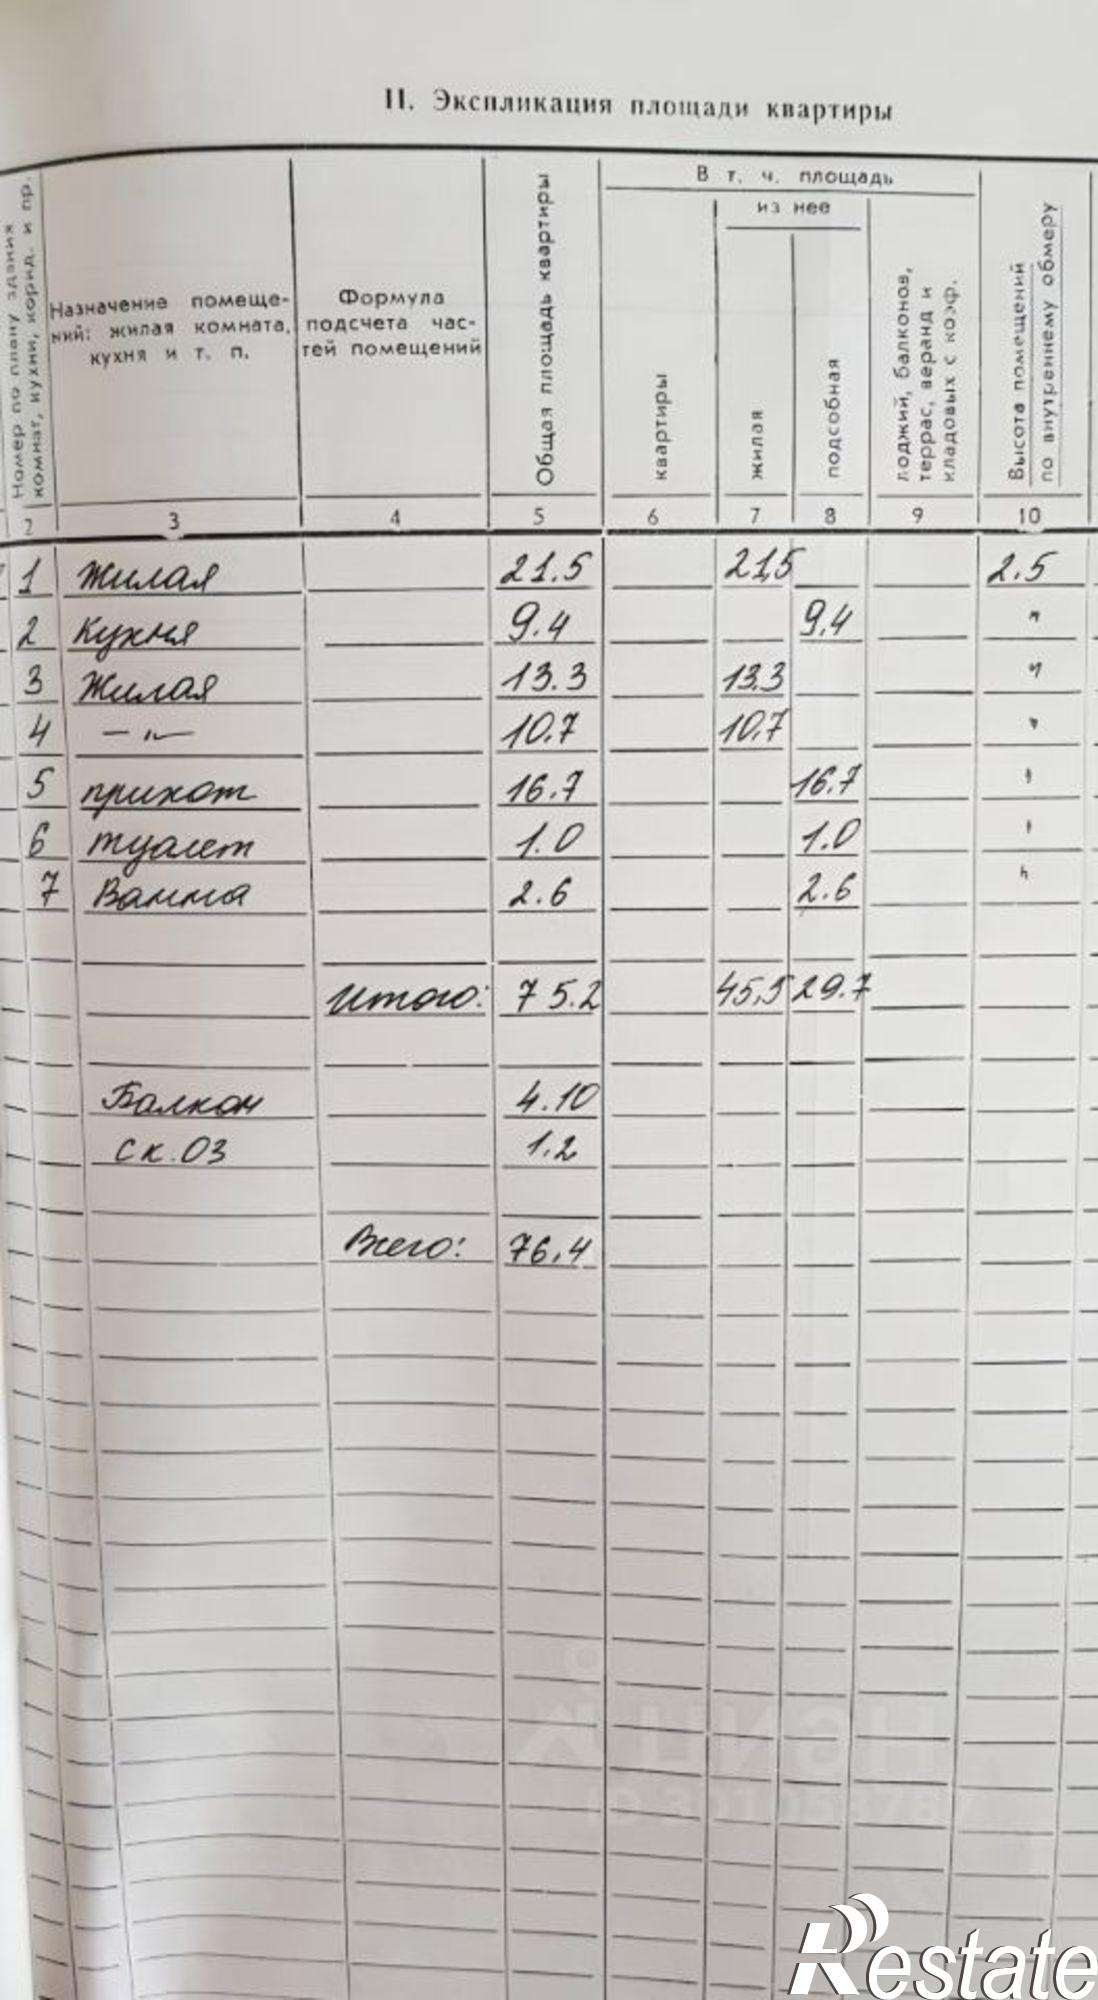 II. Экспликация площади квартиры
Номер по плану здания комнат, кухни, корид. и пр.
Назначение помеще-
ний: жилая комната,
кухня и т. п.
Формула
подсчета час-
тей помещений
Общая площадь квартиры
В т. ч. площадь
из нее
квартиры
жилая
подсобная
лоджий, балконов,
террас, веранд и
кладовых с коэф.
Высота помещений
по внутреннему обмеру
2 3 4 5 6 7 8 9 10
1 Жилая 21.5 21,5 2.5
2 Кухня 9.4 9,4 "
3 Жилая 13.3 13.3 "
4 —"— 10.7 10.7 "
5 прихот 16.7 16.7 "
6 туалет 1.0 1.0 "
7 Ванна 2.6 2.6 "
Итого: 75.2 45,5 29.7
Балкон 4.10
ск.03 1.2
Всего: 76.4
Restate